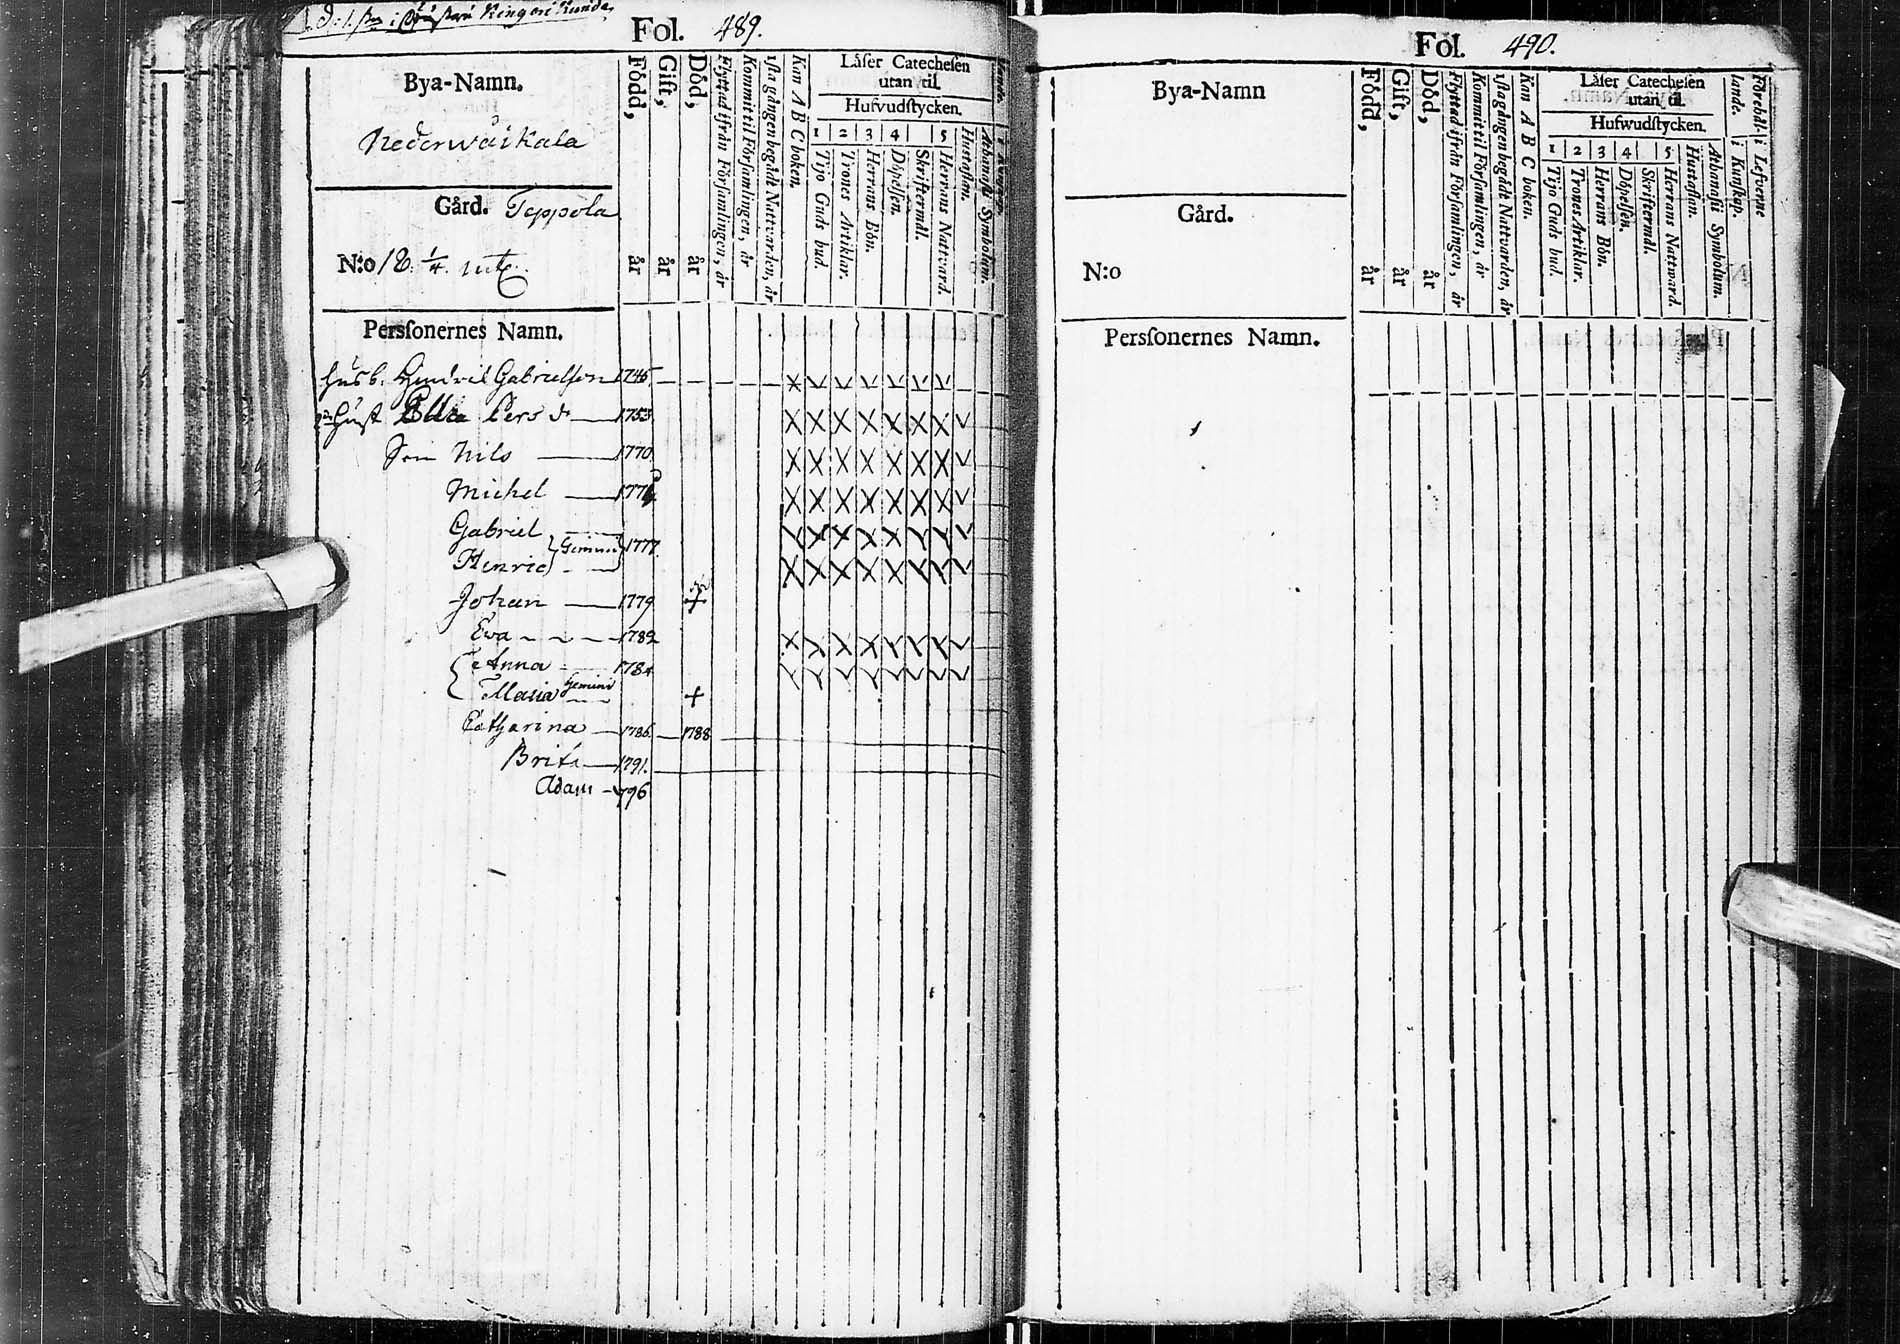 Fol. 489.
Bya-Namn.
Nederwäikala
Gård. Teppola
N:o 18. 1/4.
Född, år
Gift, år
Död, år
Flyttad ifrån Församlingen, år
Kommit til Församlingen, år
1sta gången begådt Nattvarden, år
Kan A B C boken.
Låser Catechesen
utan til.
Hufvudstycken.
1 2 3 4 5
Tijo Guds bud.
Trones Artiklar.
Herrans Bön.
Döpelsen.
Skriftermål.
Herrans Natvard.
Hustaflan.
Athanasii Symbolum.
Persſonernes Namn.
Husb. Hendric Gabrielson 1745
Hust Pers d 1753
Son Nils 1770
Michel
Gabriel
Gemini 1777.
Henric
Johan 1779 +
Ewa 1782
Anna 1784
Maria Gemini +
Catharina 1786. 1788
Brita 1791.
Adam 1796
Fol. 490.
Bya-Namn
Gård.
N:o
Född, år
Gift, år
Död, år
Flyttad ifrån Församlingen, år
Kommit til Församlingen, år
1sta gången begådt Nattvarden, år
Kan A B C boken.
Låser Catechesen
utan til.
Hufwudstycken.
1 2 3 4 5
Tijo Guds bud.
Trones Artiklar.
Herrans Bön.
Döpelsen.
Skriftermål.
Herrans Nattward.
Hustaflan.
Athanasii Symbolum.
i Kunskap.
i Lefverne
Persſonernes Namn.